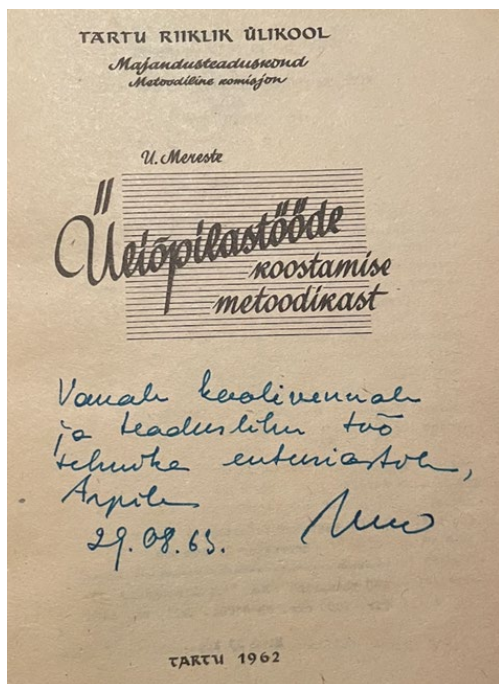 TARTU RIIKLIK ÜLIKOOL
Majandusteaduskond
Metoodiline komisjon
U. Mereste
Üliõpilastööde
koostamise
metoodikast
Vanale koolivennale
ja teadusliku töö
tehnika entusiastile,
Arpile
29.08.63. Uno
TARTU 1962